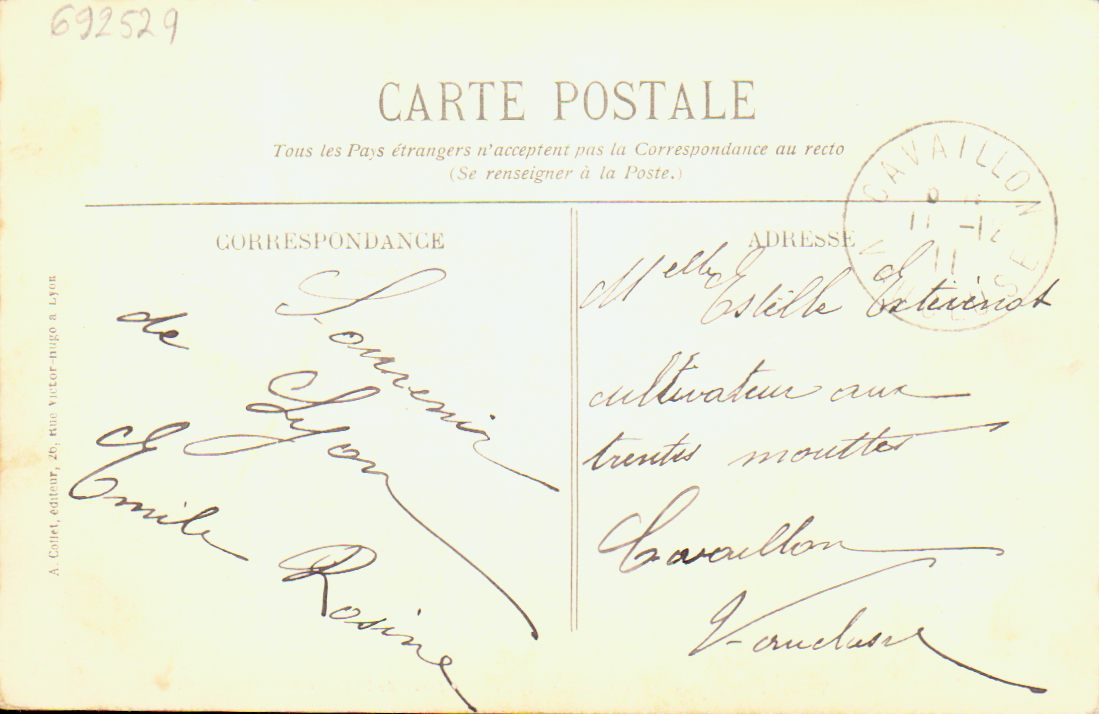 692529
CARTE POSTALE
Tous les Pays étrangers n'acceptent pas la Correspondance au recto
(Se renseigner à la Poste.)
CORRESPONDANCE
Souvenir
de Lyon
Emile Rosine
A. Collet, éditeur, 26, Rue Victor-Hugo à Lyon
ADRESSE
Melle Estelle
cultivateur aux
trentes mouttes
Cavaillon
Vaucluse
CAVAILLON
11
VAUCLUSE